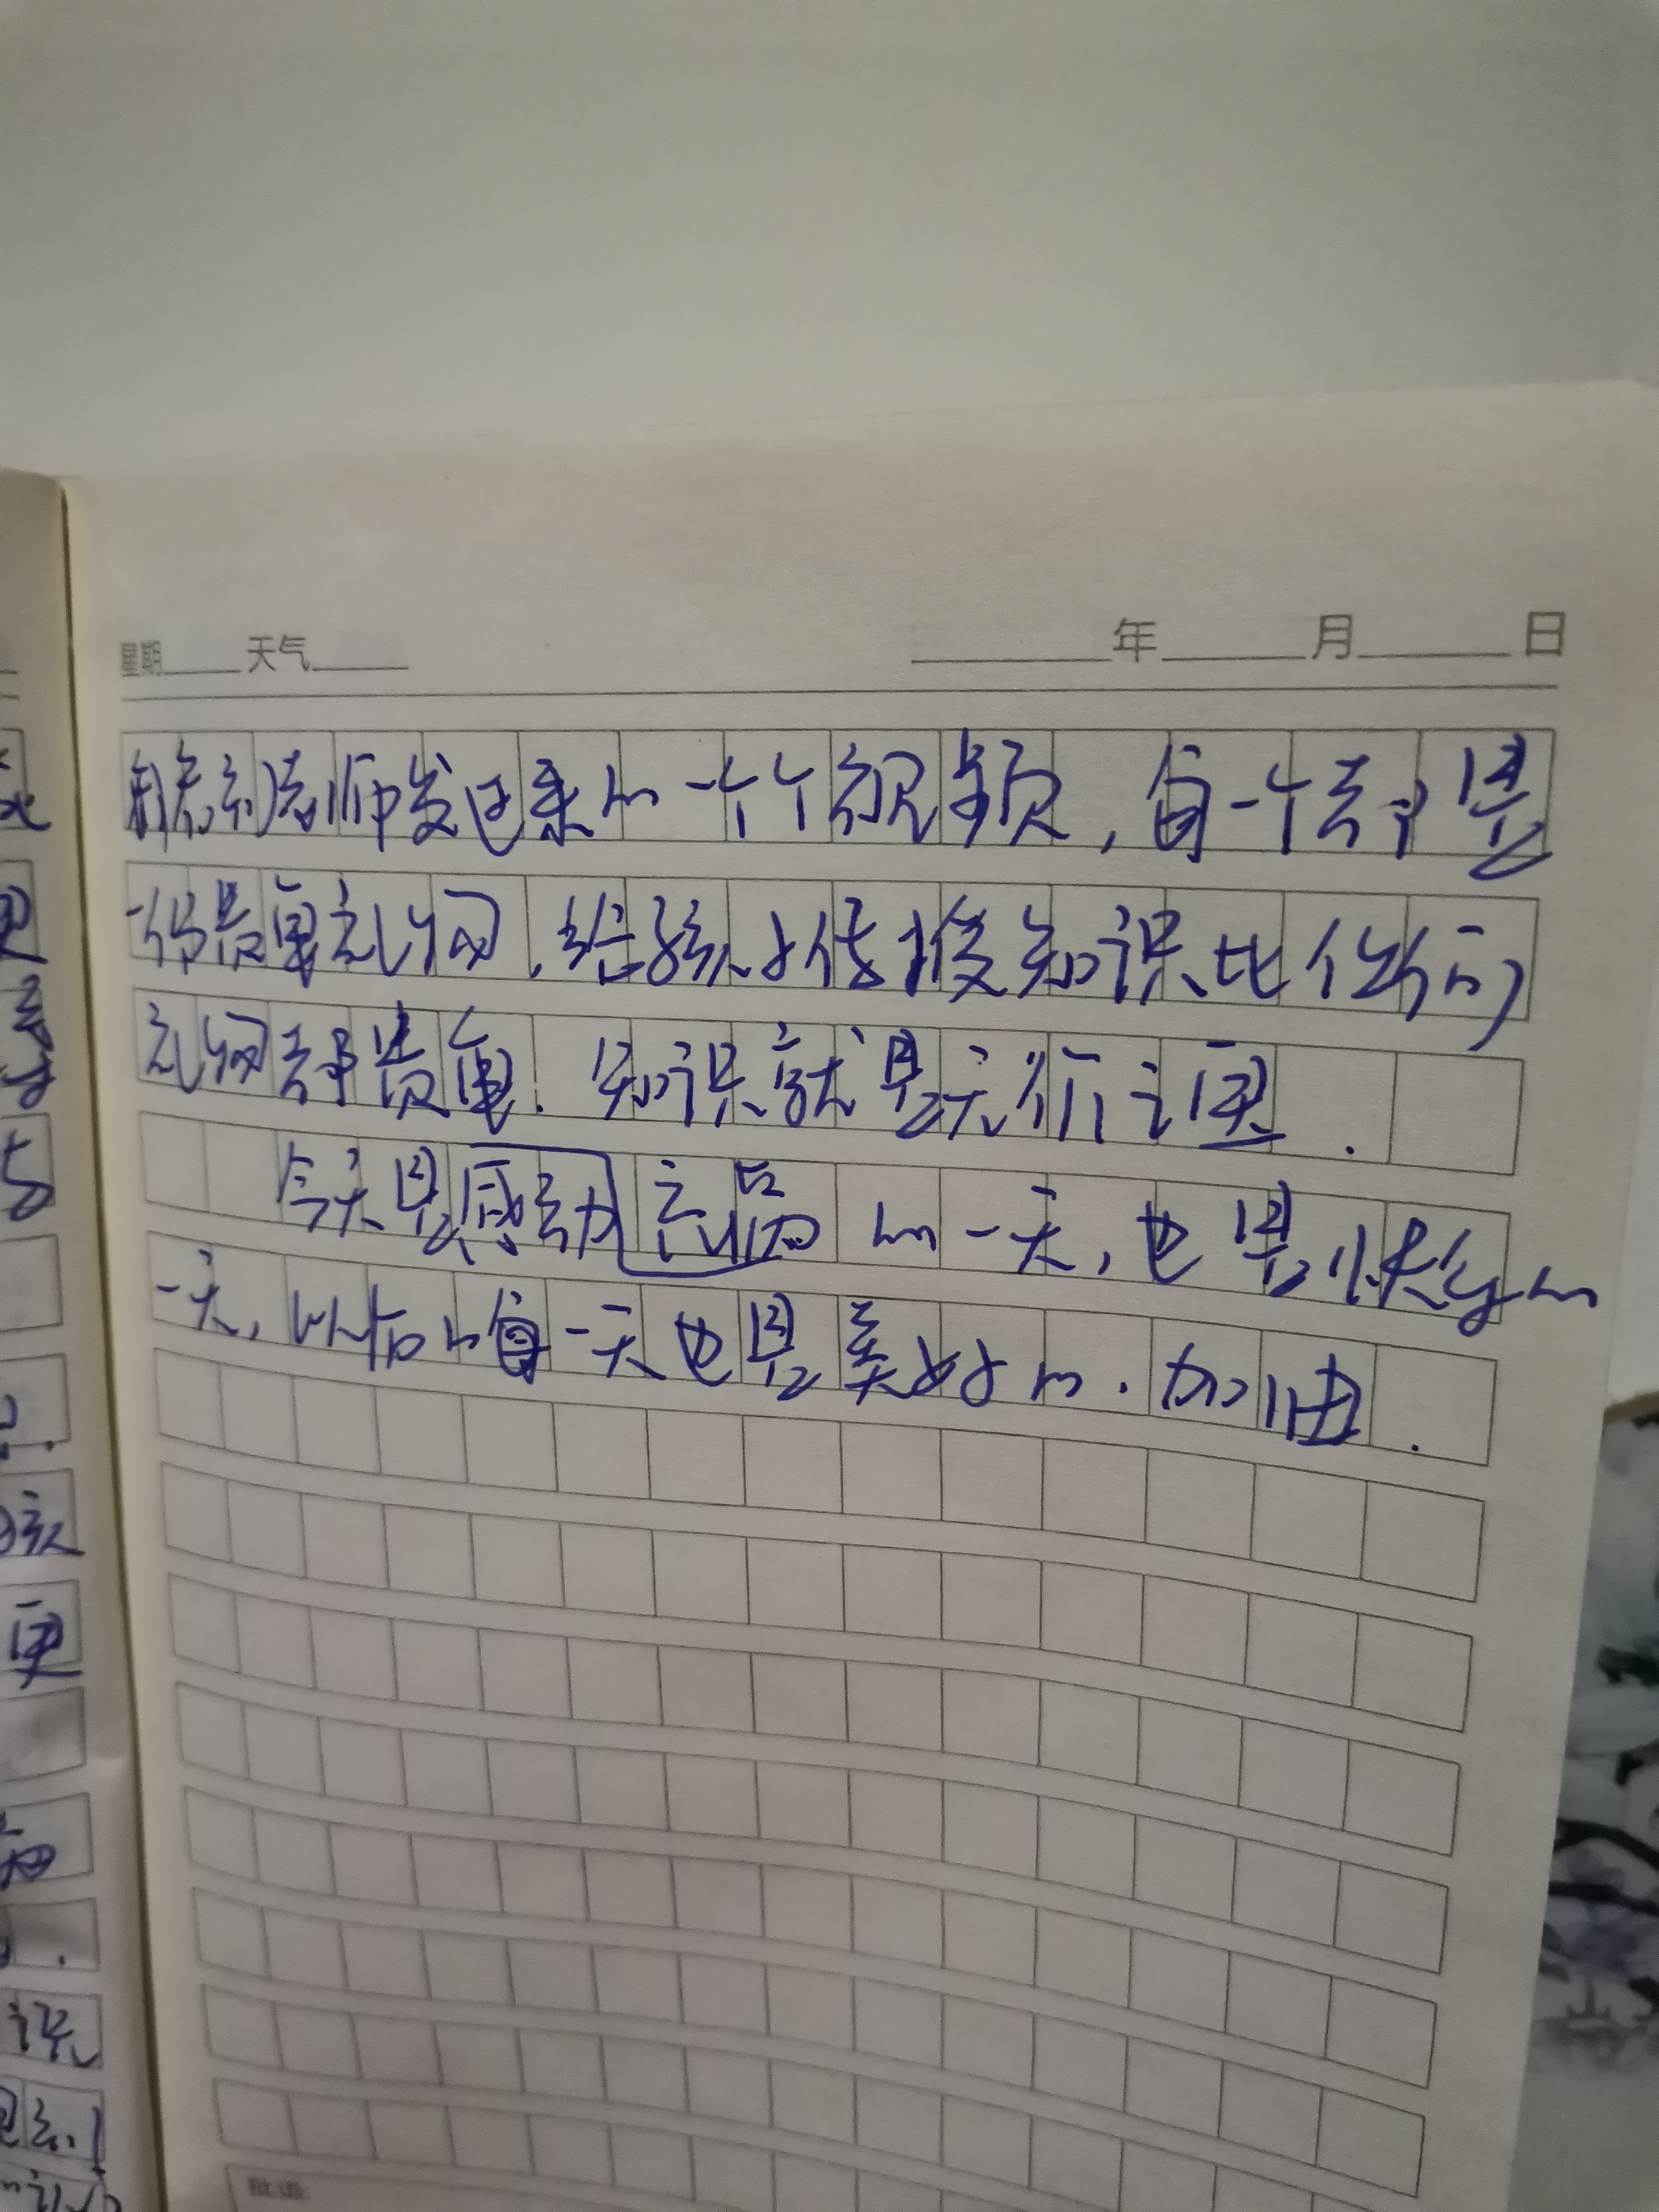 星期 天气 年 月 日
老师发过来的一个个视频,每一个都是
一份贵重礼物,给孩子传授知识比任何
礼物都贵重.知识就是无价之宝.
今天是感动 的一天,也是愉快的
一天,以后的每一天也是美好的.加油.
批语